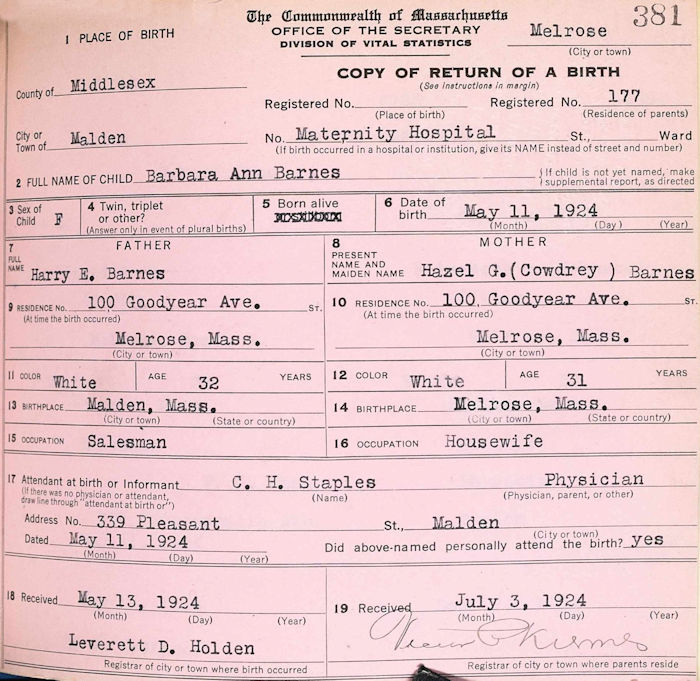 381
The Commonwealth of Massachusetts
OFFICE OF THE SECRETARY
DIVISION OF VITAL STATISTICS
Melrose
(City or town)
1 PLACE OF BIRTH
COPY OF RETURN OF A BIRTH
(See instructions in margin)
County of Middlesex
Registered No. (Place of birth) Registered No. 177 (Residence of parents)
City or Town of Malden
No. Maternity Hospital St., Ward
(If birth occurred in a hospital or institution, give its NAME instead of street and number)
2 FULL NAME OF CHILD Barbara Ann Barnes
{If child is not yet named, make
supplemental report, as directed
3 Sex of Child F
4 Twin, triplet or other?
(Answer only in event of plural births)
5 Born alive
6 Date of birth May 11, 1924
(Month) (Day) (Year)
7 FATHER
FULL NAME Harry E. Barnes
8 MOTHER
PRESENT NAME AND MAIDEN NAME Hazel G.(Cowdrey ) Barnes
9 RESIDENCE No. 100 Goodyear Ave. ST.
(At time the birth occurred)
Melrose, Mass.
(City or town)
10 RESIDENCE No. 100 Goodyear Ave. ST.
(At time the birth occurred)
Melrose, Mass.
(City or town)
11 COLOR White AGE 32 YEARS
12 COLOR White AGE 31 YEARS
13 BIRTHPLACE Malden, Mass.
(City or town) (State or country)
14 BIRTHPLACE Melrose, Mass.
(City or town) (State or country)
15 OCCUPATION Salesman
16 OCCUPATION Housewife
17 Attendant at birth or Informant C. H. Staples Physician
(If there was no physician or attendant,
draw line through "attendant at birth or")
(Name) (Physician, parent, or other)
Address No. 339 Pleasant St., Malden
(City or town)
Dated May 11, 1924
(Month) (Day) (Year)
Did above-named personally attend the birth? yes
18 Received May 13, 1924
(Month) (Day) (Year)
Leverett D. Holden
Registrar of city or town where birth occurred
19 Received July 3, 1924
(Month) (Day) (Year)
Registrar of city or town where parents reside